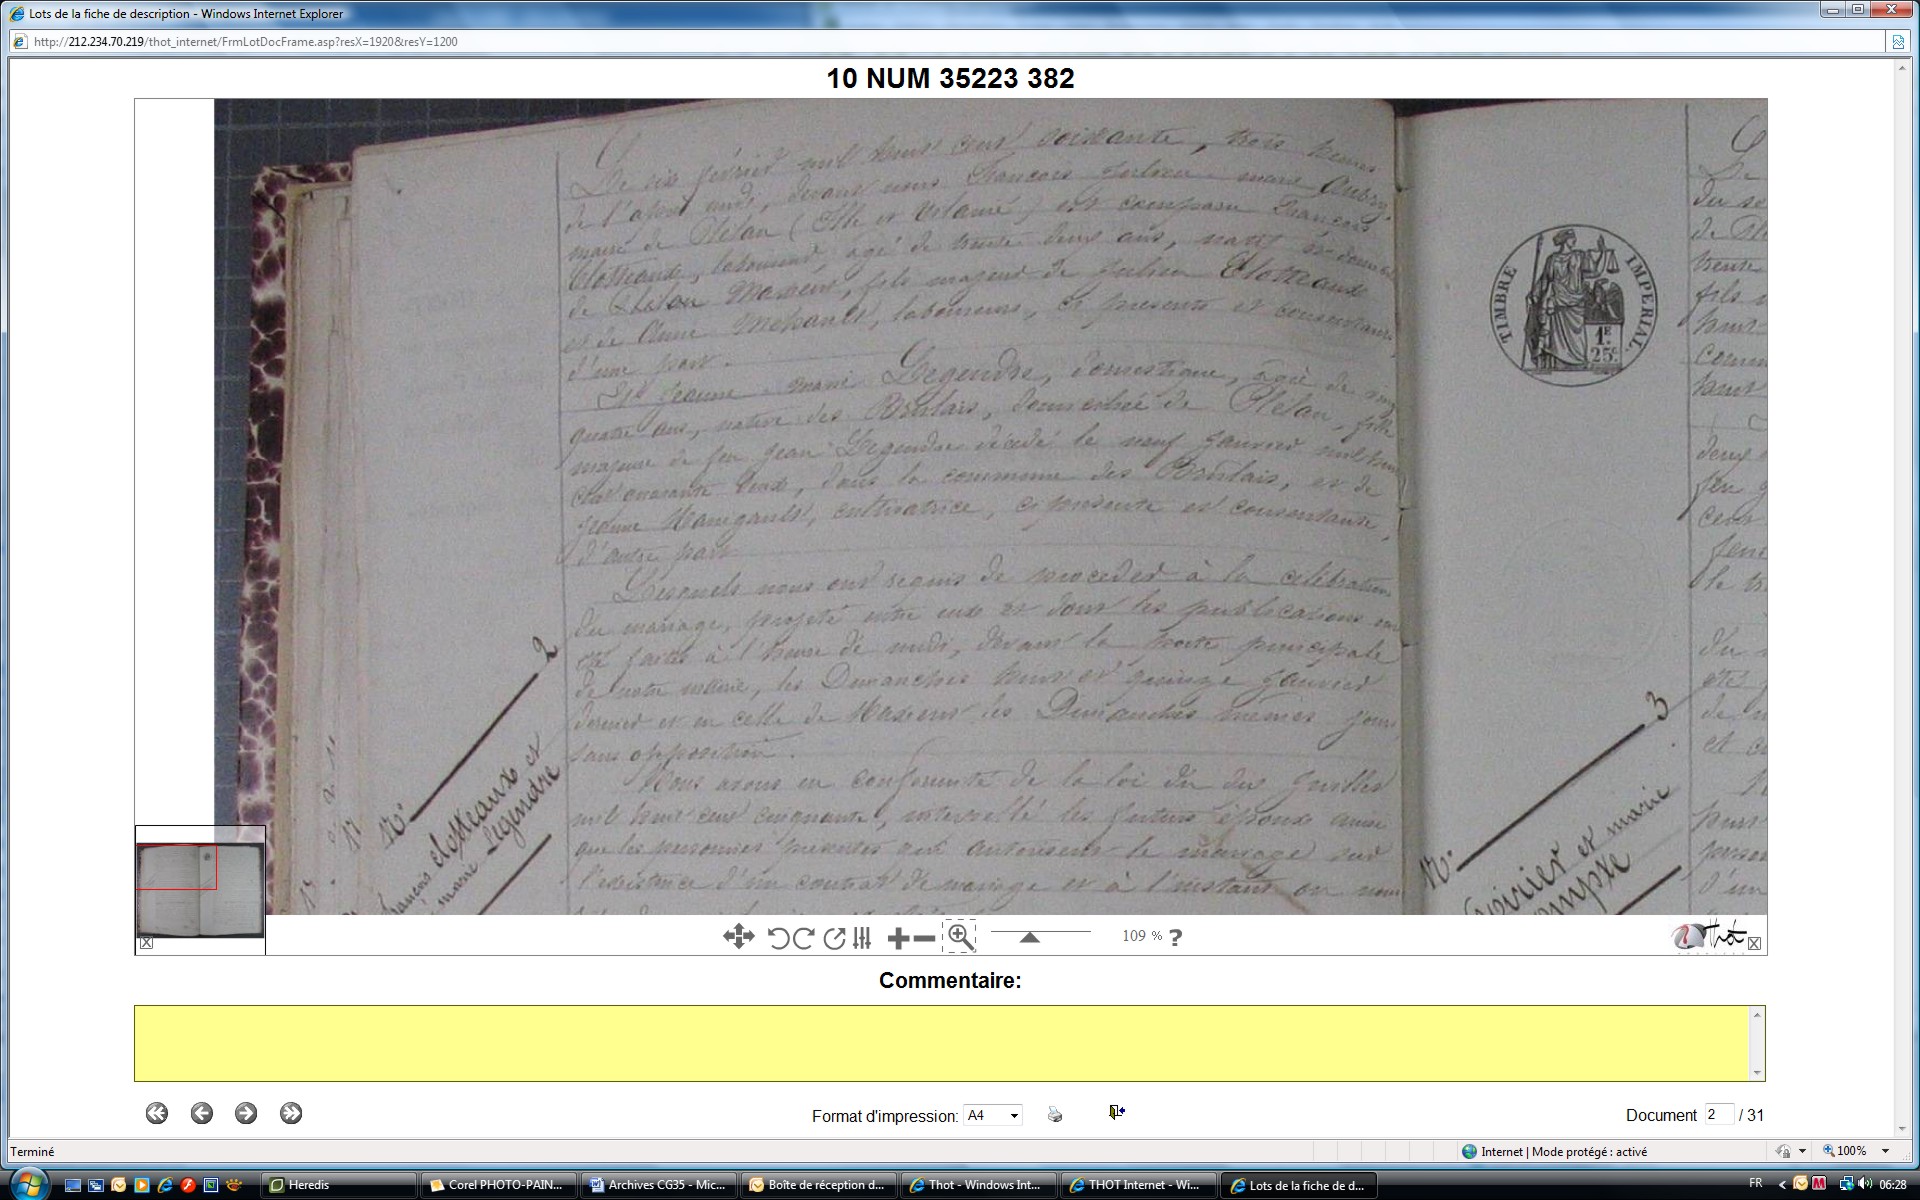 Lots de la fiche de description - Windows Internet Explorer
http://212.234.70.219/thot_internet/FrmLotDocFrame.asp?resX=1920&resY=1200
10 NUM 35223 382
Le six février mil huit cent soixante, trois heures
de l'après midi, devant nous François Julien marie Aubry,
maire de Plélan (Ille et Vilaine) est comparu François
Clotteaux, laboureur, agé de trente deux ans, natif et
de Plélan Maxent, fils majeur de Julien Clotteaux
et de Anne laboureurs, ci présents et consentants,
d'une part.
Et Jeanne marie Legendre, domestique, agée de
quatre ans, native des Brulais, domiciliée de Plélan, fille
majeure de feu Jean Legendre décédé le neuf janvier mil huit
cent quarante deux, dans la commune des Brulais, et de
Jeanne cultivatrice, ci présente et consentante,
d'autre part
Lesquels nous ont requis de procéder à la célébration
du mariage, projeté entre eux et dont les publications ont
été faites à l'heure de midi, devant la porte principale
de notre mairie, les Dimanches huit et quinze janvier
dernier et en celle de Maxent les Dimanches mêmes jours
sans opposition.
Nous avons en conformité de la loi du dix Juillet
mil huit cent cinquante, interpellé les futurs époux ainsi
que les personnes présentes qui autorisent le mariage sur
l'existence d'un contrat de mariage et à l'instant on nous
N° 2
François Clotteaux et
marie Legendre
TIMBRE IMPERIAL.
1F.
25c.
N° 3
et marie
109 % ?
Thot
Commentaire:
Format d'impression: A4
Document 2 / 31
Terminé
Internet | Mode protégé : activé
100%
Heredis
Corel PHOTO-PAIN...
Archives CG35 - Mic...
Boîte de réception d...
Thot - Windows Int...
THOT Internet - Wi...
Lots de la fiche de d...
FR
06:28